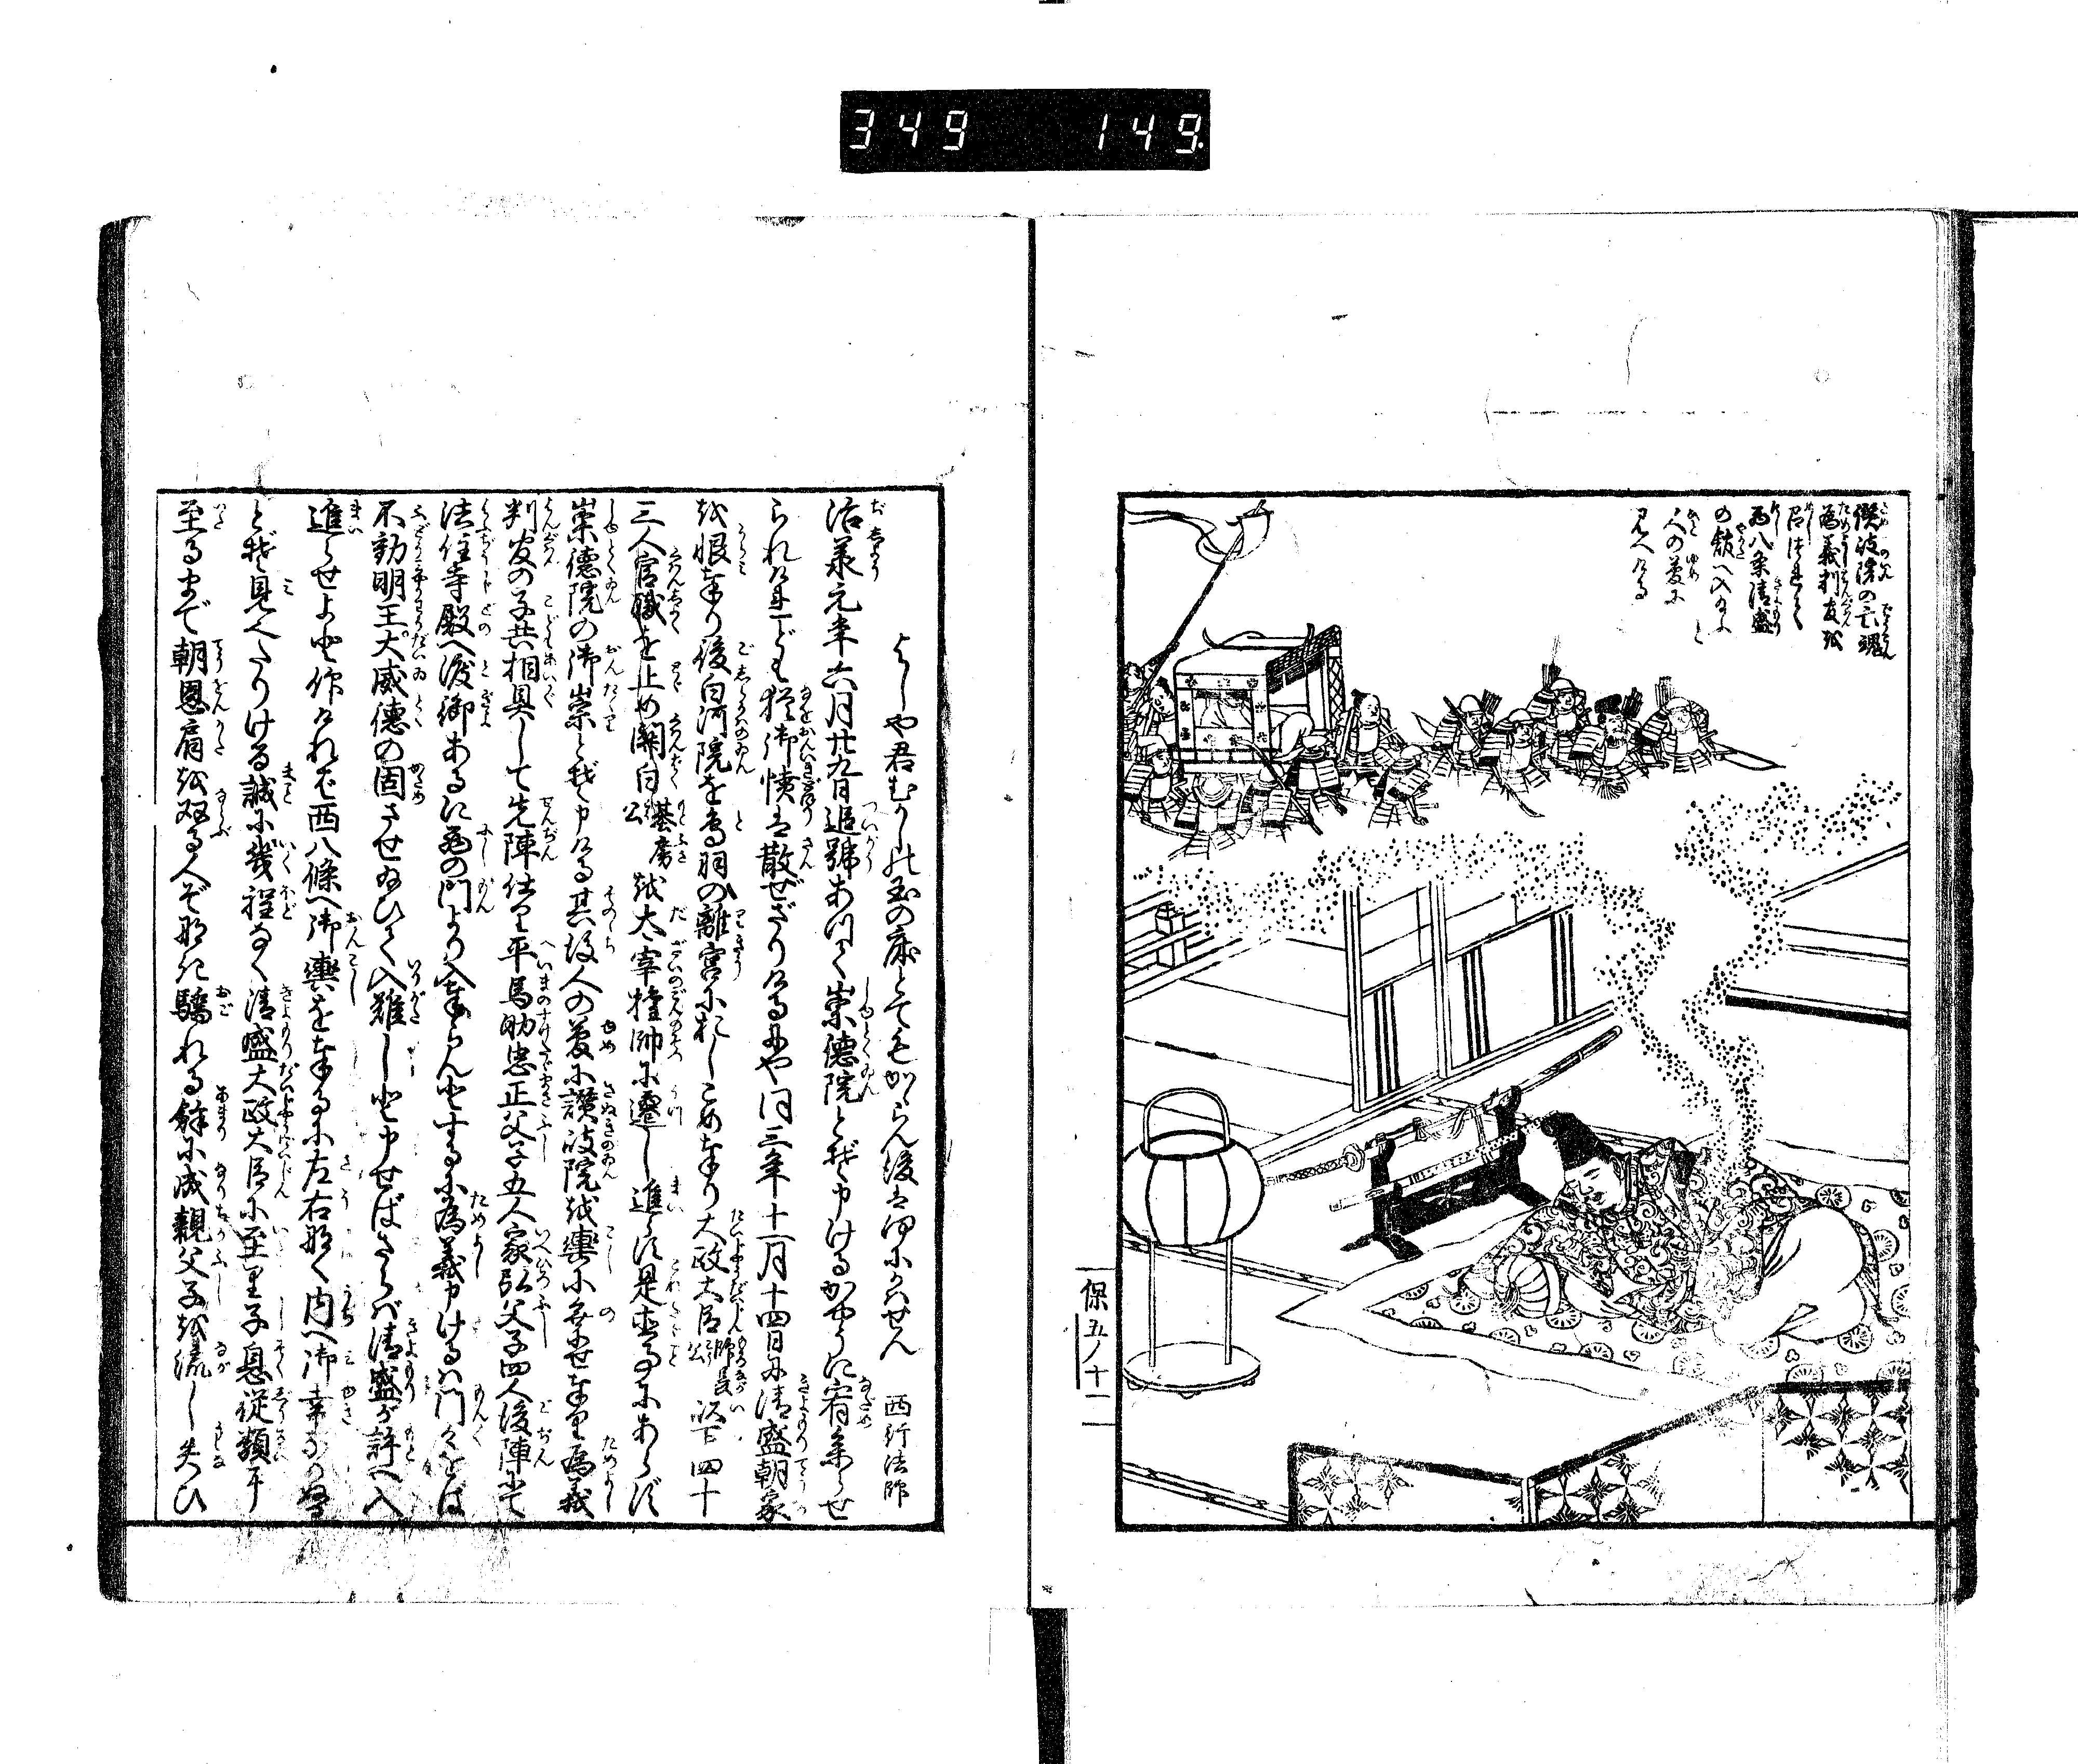 349 149
讃岐院の亡魂
為義判官を
召つれて
西八条清盛
の館へ入給ふと
人の夢に
見へける
保五ノ十二
よしや君むかしの玉の床とてもかゝらん後は何にかはせん 西行法師
治承元年六月廿九日追號あつて崇徳院とぞ申けるかやうに宥参らせ
られけれども猶御憤は散ぜざりけるにや同三年十一月十四日に清盛朝家
を恨奉り後白河院を鳥羽の離宮に押こめ奉り大政大臣師長公以下四十
三人官職を止め関白基房公を太宰権帥に遷し進らす是直事にあらず
崇徳院の御祟とぞ申ける其後人の夢に讃岐院を輿にのせ奉り為義
判官の子共相具して先陣仕り平馬助忠正父子五人家弘父子四人後陣にて
法住寺殿へ渡御あるに西の門より入奉らんとするに為義申けるは門々をば
不動明王大威徳の固させ給ひて入難しと申せばさらば清盛が許へ入
進らせよと仰ければ西八條へ御輿を奉るに左右なく内へ御幸なりぬ
とぞ見へたりける誠に幾程なく清盛大政大臣に至り子息従類
至るまで朝恩肩を双る人ぞなき驕れる餘に成親父子を流し失ひ